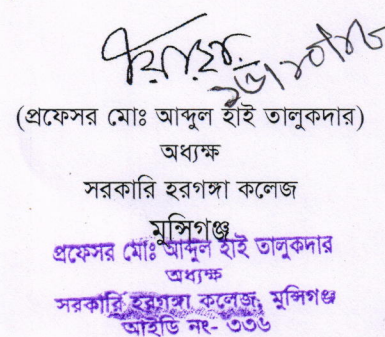 (প্রফেসর মোঃ আব্দুল হাই তালুকদার)
অধ্যক্ষ
সরকারি হরগঙ্গা কলেজ
মুন্সিগঞ্জ
প্রফেসর মোঃ আব্দুল হাই তালুকদার
অধ্যক্ষ
সরকারি হরগঙ্গা কলেজ, মুন্সিগঞ্জ
আইডি নং- ৩৩৬